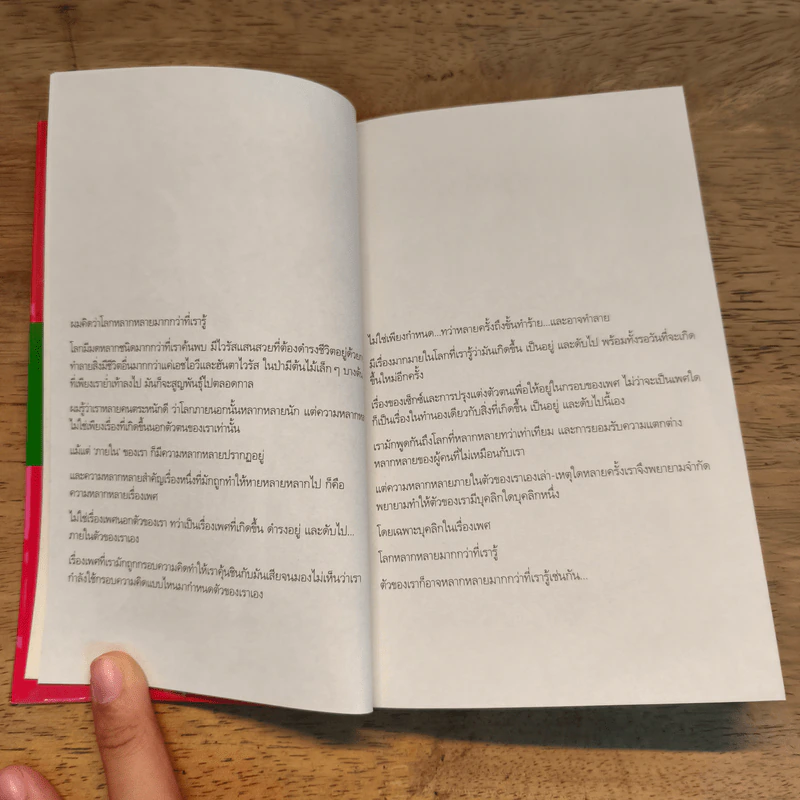 ผมคิดว่าโลกหลากหลายมากกว่าที่เรารู้
โลกมีมดหลากชนิดมากกว่าที่เราค้นพบ มีไวรัสแสนสวยที่ต้องดำรงชีวิตอยู่ด้วยการ
ทำลายสิ่งมีชีวิตอื่นมากกว่าแค่เอชไอวีและฮันตาไวรัส ในป่ามีต้นไม้เล็กๆ บางต้น
ที่เพียงเราย่ำเท้าลงไป มันก็จะสูญพันธุ์ไปตลอดกาล
ผมรู้ว่าเราหลายคนตระหนักดี ว่าโลกภายนอกนั้นหลากหลายนัก แต่ความหลากหลาย
ไม่ใช่เพียงเรื่องที่เกิดขึ้นนอกตัวตนของเราเท่านั้น
แม้แต่ 'ภายใน' ของเรา ก็มีความหลากหลายปรากฏอยู่
และความหลากหลายสำคัญเรื่องหนึ่งที่มักถูกทำให้หายหลายหลากไป ก็คือ
ความหลากหลายเรื่องเพศ
ไม่ใช่เรื่องเพศนอกตัวของเรา ทว่าเป็นเรื่องเพศที่เกิดขึ้น ดำรงอยู่ และดับไป...
ภายในตัวของเราเอง
เรื่องเพศที่เรามักถูกกรอบความคิดทำให้เราคุ้นชินกับมันเสียจนมองไม่เห็นว่าเรา
กำลังใช้กรอบความคิดแบบไหนมากำหนดตัวของเราเอง
ไม่ใช่เพียงกำหนด...ทว่าหลายครั้งถึงขั้นทำร้าย...และอาจทำลาย
มีเรื่องมากมายในโลกที่เรารู้ว่ามันเกิดขึ้น เป็นอยู่ และดับไป พร้อมทั้งรอวันที่จะเกิด
ขึ้นใหม่อีกครั้ง
เรื่องของเซ็กซ์และการปรุงแต่งตัวตนเพื่อให้อยู่ในกรอบของเพศ ไม่ว่าจะเป็นเพศใด
ก็เป็นเรื่องในทำนองเดียวกับสิ่งที่เกิดขึ้น เป็นอยู่ และดับไปนี้เอง
เรามักพูดกันถึงโลกที่หลากหลายทว่าเท่าเทียม และการยอมรับความแตกต่าง
หลากหลายของผู้คนที่ไม่เหมือนกับเรา
แต่ความหลากหลายภายในตัวของเราเองเล่า-เหตุใดหลายครั้งเราจึงพยายามจำกัด
พยายามทำให้ตัวของเรามีบุคลิกใดบุคลิกหนึ่ง
โดยเฉพาะบุคลิกในเรื่องเพศ
โลกหลากหลายมากกว่าที่เรารู้
ตัวของเราก็อาจหลากหลายมากกว่าที่เรารู้เช่นกัน...